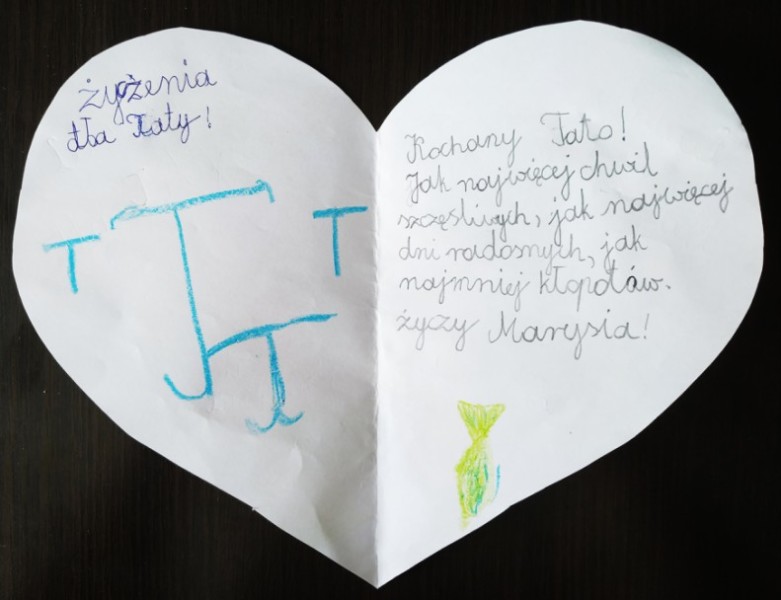 żyżenia
dla Taty!
T T T
T
Kochany Tato!
Jak najwięcej chwil
szczęśliwych, jak najwięcej
dni radosnych, jak
najmniej kłopotów.
życzy Marysia!